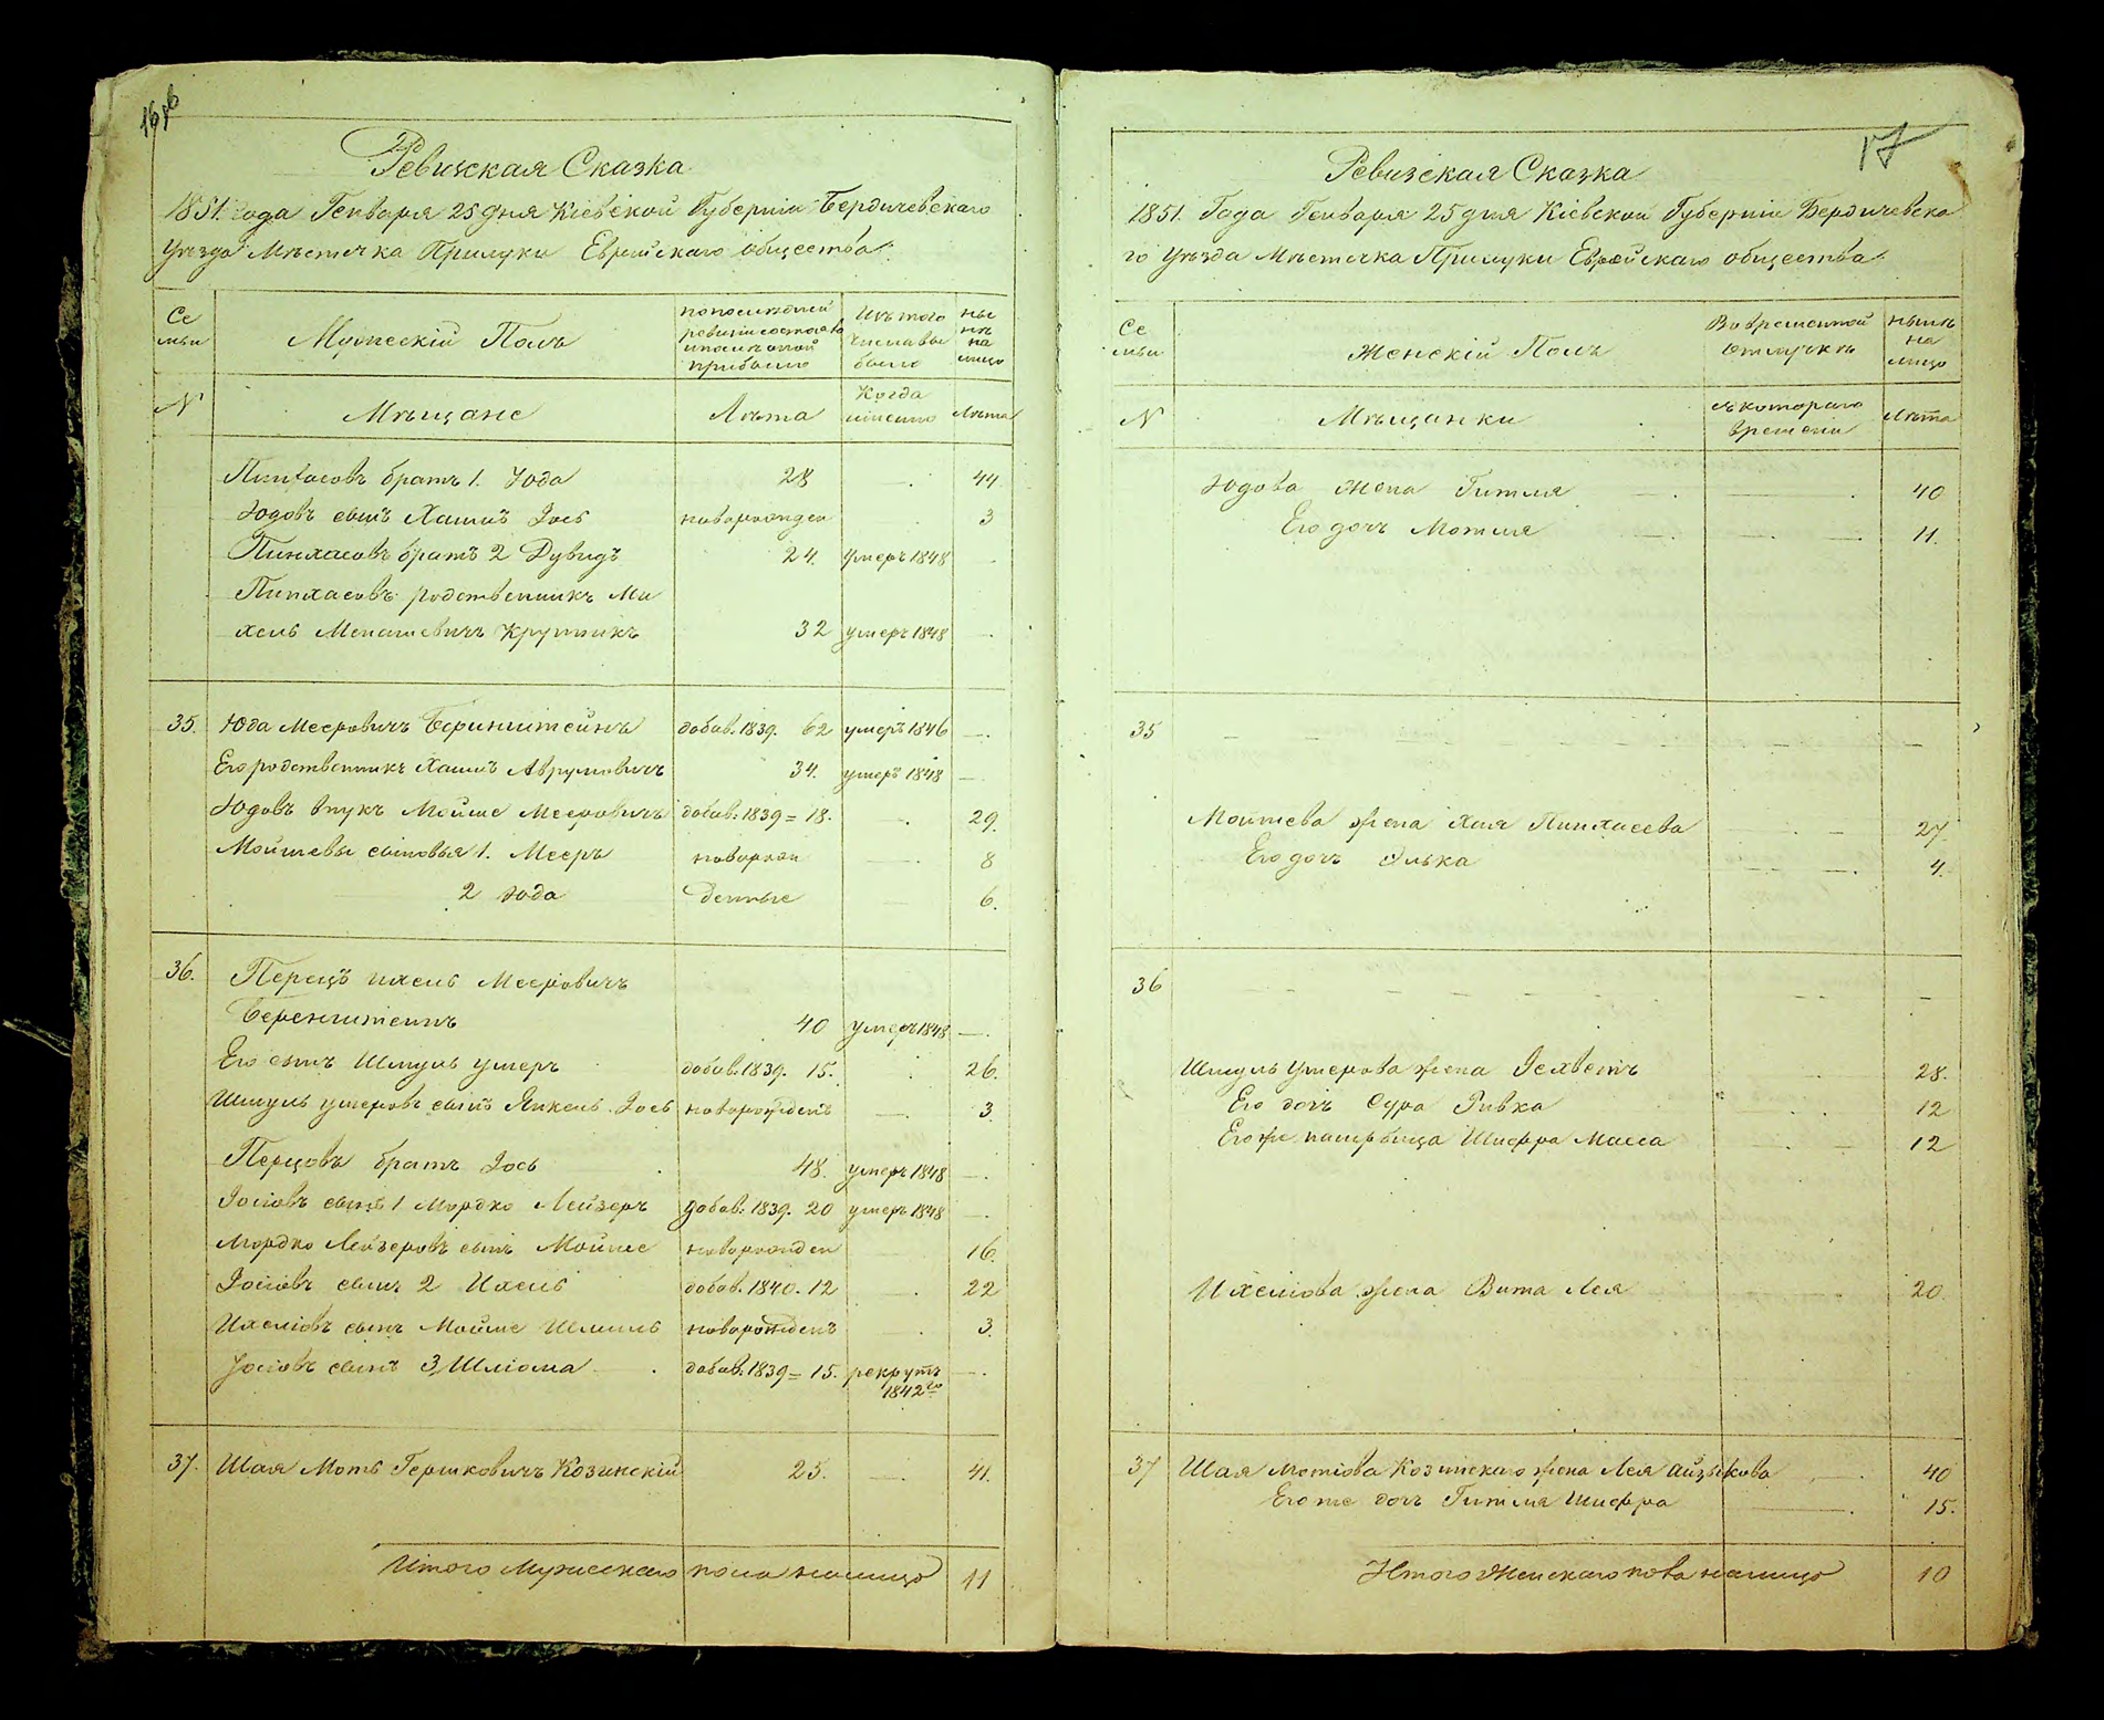 16
Ревизская Сказка
1851. Года Генваря 25 дня Кіевской Губерніи Бердичевскаго
Уѣзда Мѣстечка Прилуки Еврейскаго общества.
Се
мьи
Мужескій Полъ
по последней
ревизіи состояло
и после оной
прибыло
Изъ того
числа вы
было
ны
нѣ
на
лицо
N
Мѣщане
Лѣта
Когда
именно
Лѣта
Пинхасовъ братъ 1. Юда 28 — 44
Юдовъ сынъ Хаимъ Іось новорожден 3
Пинхасовъ братъ 2 Дувидъ 24. умеръ 1848
Пинхасовъ родственникъ Ми
хель Менашевичъ Крупникъ 32 умеръ 1848 —
35. Юда Мееровичъ Беринштейнъ добав. 1839. 62 умеръ 1846 —
Его родственникъ Хаимъ Аврумовичъ 34. умеръ 1848 —
Юдовъ внукъ Мойше Мееровичъ добав. 1839 = 18. — 29.
Мойшевы сыновья 1. Мееръ новорож — 8
2 Юда денные 6.
36. Перецъ Ихель Мееровичъ
Беренштейнъ 40 умеръ 1848 —
Его сынъ Шмуль Умеръ добав. 1839. 15. 26.
Шмуль Умеровъ сынъ Янкель Іось новорожденъ — 3
Перцовъ братъ Іось 48. умеръ 1848 —
Іосіовъ сынъ 1 Мордко Лейзеръ добав. 1839. 20 умеръ 1848 —
Мордко Лейзеровъ сынъ Мойше новорожден 16.
Іосіовъ сынъ 2 Ихель добав. 1840. 12 — 22
Ихеліовъ сынъ Мойше Шмиль новорожденъ 3.
Іосіовъ сынъ 3 Шліома добав. 1839 = 15. рекрутъ —
1842го
37. Шая Моть Гершковичъ Козинскій 25. — 41.
Итого Мужескаго пола налицо 11
17
Ревизская Сказка
1851. Года Генваря 25 дня Кіевской Губерніи Бердичевска
го Уѣзда Мѣстечка Прилуки Еврейскаго общества.
Се
мьи
Женскій Полъ
Во временной
отлучкѣ
нынѣ
на
лицо
N
Мѣщанки
съ котораго
времени
Лѣта
Юдова жена Гитля — 40
Его дочь Мотля — 11.
35 — — —
Мошіева жена Хая Пинхасева — 27
Его дочь Элька — 4.
36 — — —
Шмуль Умерова жена Іехветъ 28.
Его дочь Сура Ривка 12
Его же падчерица Шифра Масса 12
Ихеліова жена Вита Лея 20.
37 Шая Мотіова Козинскаго жена Лея Айзыкова — 40
Его же дочь Гитля Шифра — 15.
Итого Женскаго пола налицо 10